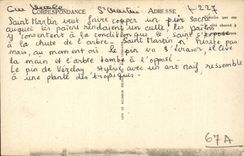 St Martin 1-227
CORRESPONDANCE ADRESSE
Saint Martin veut faire couper un pin sacré
auquel les païens rendaient un culte, les païens
y consentent à la condition que le saint s'expose
à la chute de l'arbre. Saint Martin n'hésite pas
mais, au moment où le pin va l'écraser, il lève
la main et l'arbre tombe à l'opposé.
Le pin de Vézelay, stylisé avec un art naïf, ressemble
à une plante des tropiques.
67A